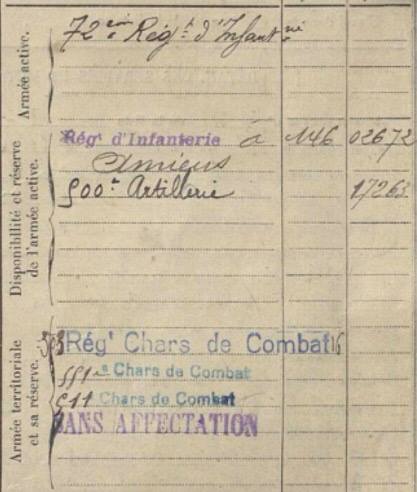 Armée active.
72ème Régt d'Infantrie
Disponibilité et réserve
de l'armée active.
Régt d'Infanterie à 146 02672
Amiens
500e Artillerie 17263
Armée territoriale
et sa réserve.
Régt Chars de Combat
551e Chars de Combat
511 Chars de Combat
SANS AFFECTATION